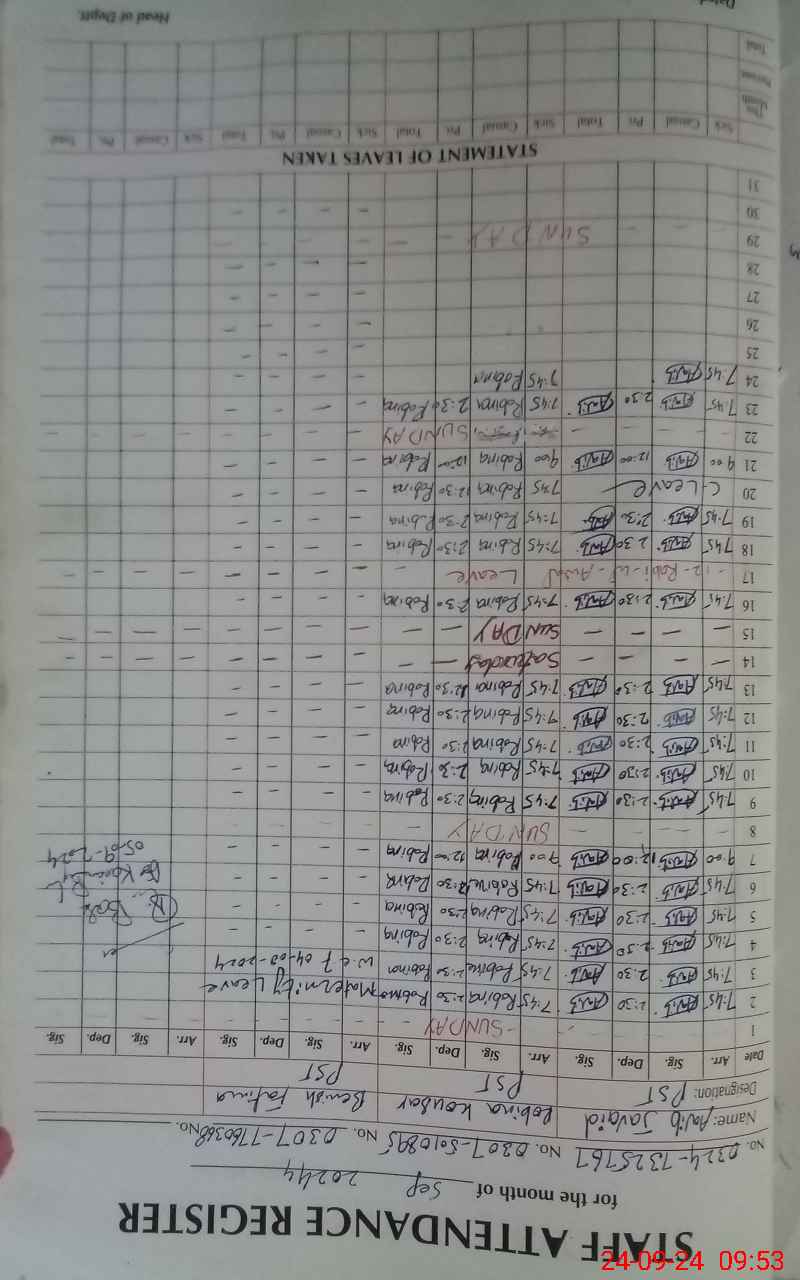 STAFF ATTENDANCE REGISTER
for the month of Sep 20244
No. 0324-7325767 No. 0307-5010895 No. 0307-7760368 No.
Name: Aqib Javaid Robina Kousar Benish Fatima
Designation: PST PST PST
Date Arr. Sig. Dep. Sig. Arr. Sig. Dep. Sig. Arr. Sig. Dep. Sig. Arr. Sig. Dep. Sig.
1 - - - - SUNDAY - - - -
2 7:45 2:30 7:45 Robina 2:30 Robina Maternity Leave
3 7:45 2:30 7:45 Robina 2:30 Robina w.e.f 04-00-2024
4 7:45 2:30 7:45 Robina 2:30 Robina - - - -
5 7:45 2:30 7:45 Robina 2:30 Robina - - - -
6 7:45 2:30 7:45 Robina 2:30 Robina - - - -
7 9:00 12:00 9:00 Robina 12:00 Robina - - - -
05-09-2024
8 - - - - SUNDAY - - - -
9 7:45 2:30 7:45 Robina 2:30 Robina - - - -
10 7:45 2:30 7:45 Robina 2:30 Robina - - - -
11 7:45 2:30 7:45 Robina 2:30 Robina - - - -
12 7:45 2:30 7:45 Robina 2:30 Robina - - - -
13 7:45 2:30 7:45 Robina 12:30 Robina - - - -
14 - - - - Saturday - - - - - - - - - -
15 - - - - SUNDAY - - - - - - - - - -
16 7:45 2:30 7:45 Robina 2:30 Robina - - - -
17 -12-Rabi-ul-Awal Leave - - - - - - - - -
18 7:45 2:30 7:45 Robina 2:30 Robina - - - -
19 7:45 2:30 7:45 Robina 2:30 Robina - - - -
20 C-Leave 7:45 Robina 12:30 Robina - - - -
21 9:00 12:00 9:00 Robina 12:00 Robina - - - -
22 - - - - SUNDAY - - - - - - - -
23 7:45 2:30 7:45 Robina 2:30 Robina - - - -
24 7:45 7:45 Robina - - - -
25 - - - -
26 - - - -
27 - - - -
28 - - - -
29 SUNDAY - - - - - -
30 - - - -
31
STATEMENT OF LEAVES TAKEN
Sick Casual Pri. Total Sick Casual Pri. Total Sick Casual Pri. Total Sick Casual Pri. Total
This Month
Previous
Total
Head of Deptt.
24-09-24 09:53